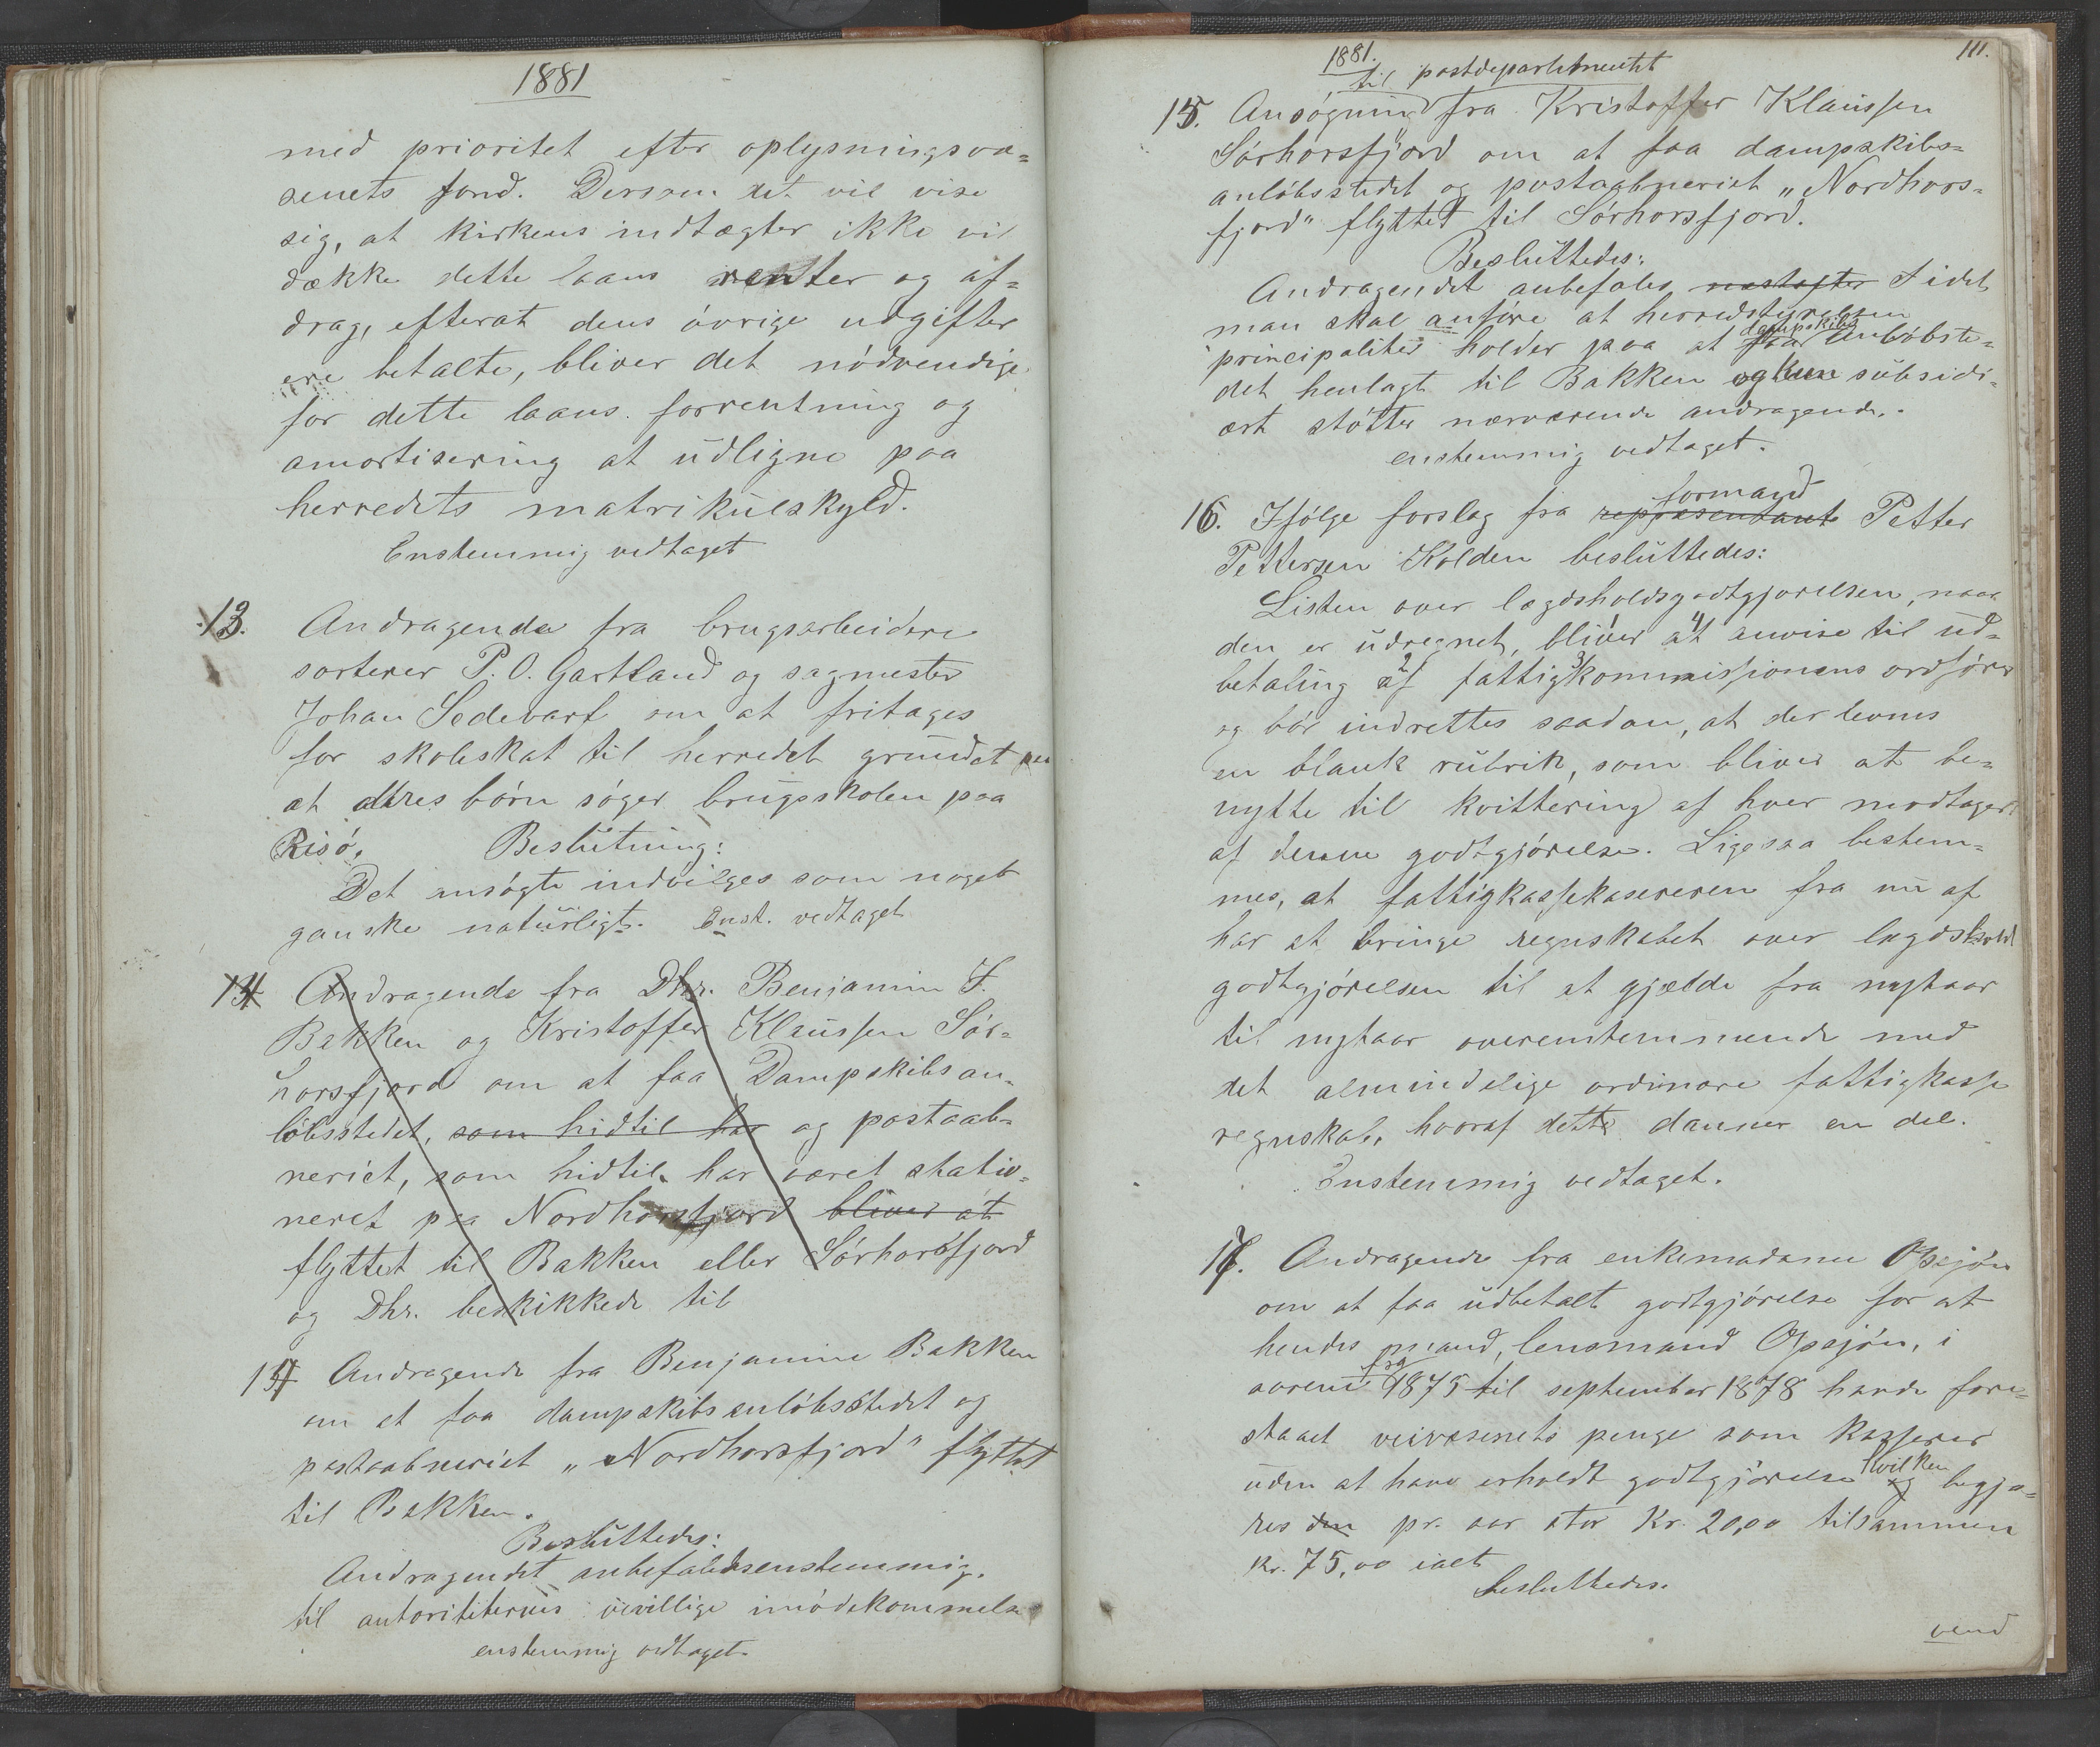 1881
med prioritet efter oplysningsvæ=
senets fond. Dersom det vil vise
sig, at kirkens indtægter ikke vil
dække dette laans renter og af=
drag, efterat dens övrige udgifter
ere betalte, bliver det nödvendige
for dette laans forrentning og
amortisering at udligne paa
herredets matrikulskyld.
Enstemmig vedtaget
13.
Andragende fra brugsarbeidere
sorterer P. O. Gartland og sagmester
Johan Sedevart om at fritages
for skoleskat til herredet grundet paa
at deres börn söger brugsskolen paa
Risö.
Beslutning:
Det ansögte indvilges som noget
ganske naturligt. Enst. vedtaget
14 Andragende fra Dhr. Benjamin F.
Bakken og Kristoffer Klaussen Sör=
horsfjord om at faa Dampskibsan=
löbsstedet, som hidtil har og postaab=
neriet, som hidtil har været statio=
neret paa Nordhorsfjord bliver at
flyttet til Bakken eller Sörhorsfjord
og Dhr. beskikkede til
14 Andragende fra Benjamin Bakken
om at faa dampskibsanlöbsstedet og
postaabneriet „Nordhorsfjord" flyttet
til Bakken.
Besluttedes:
Andragendet anbefaledes enstemmig.
til autoriteternes velvillige imödekommelse
enstemmig vedtaget.
1881.
111.
til postdepartementet
15. Ansögning fra Kristoffer Klaussen
Sörhorsfjord om at faa dampskibs=
anlöbsstedet og postaabneriet „Nordhors=
fjord" flyttet til Sörhorsfjord.
Besluttedes:
Andragendet anbefales idet
man skal anföre at herredstyrelsen
dampskibs
principaliter holder paa at faa anlöbste=
det henlagt til Bakken og kun subsidi=
ært stötter nærværende andragende.
enstemmig vedtaget.
formand
16. Ifölge forslag fra repræsentant Petter
Pettersen Kolden besluttedes:
Listen over lægdsholdsgodtgjörelsen, naar
den er udregnet, bliver at anvise til ud=
betaling af fattigkommissionens ordförer
og bör indrettes saadan, at der levnes
en blank rubrik, som bliver at be=
nytte til kvittering af hver modtager
af denne godtgjörelse. Ligesaa bestem=
mes, at fattigkassekasereren fra nu af
har at bringe regnskabet over lægdshold
godtgjörelsen til at gjælde fra nytaar
til nytaar overenstemmende med
det almindelige ordinære fattigkasse
regnskab, hvoraf dette danner en del.
Enstemmig vedtaget.
17. Andragende fra enkemadame Opsjön
om at faa udbetalt godtgjörelse for at
hendes mand, lensmand Opsjön, i
fra
aarene 1875 til september 1878 havde fore=
staaet veivæsenets penge som kasserer
hvilken
uden at have erholdt godtgjörelse og begjæ=
res den pr. aar stor Kr. 20,00 tilsammen
Kr. 75,00 ialt
besluttedes.
vend